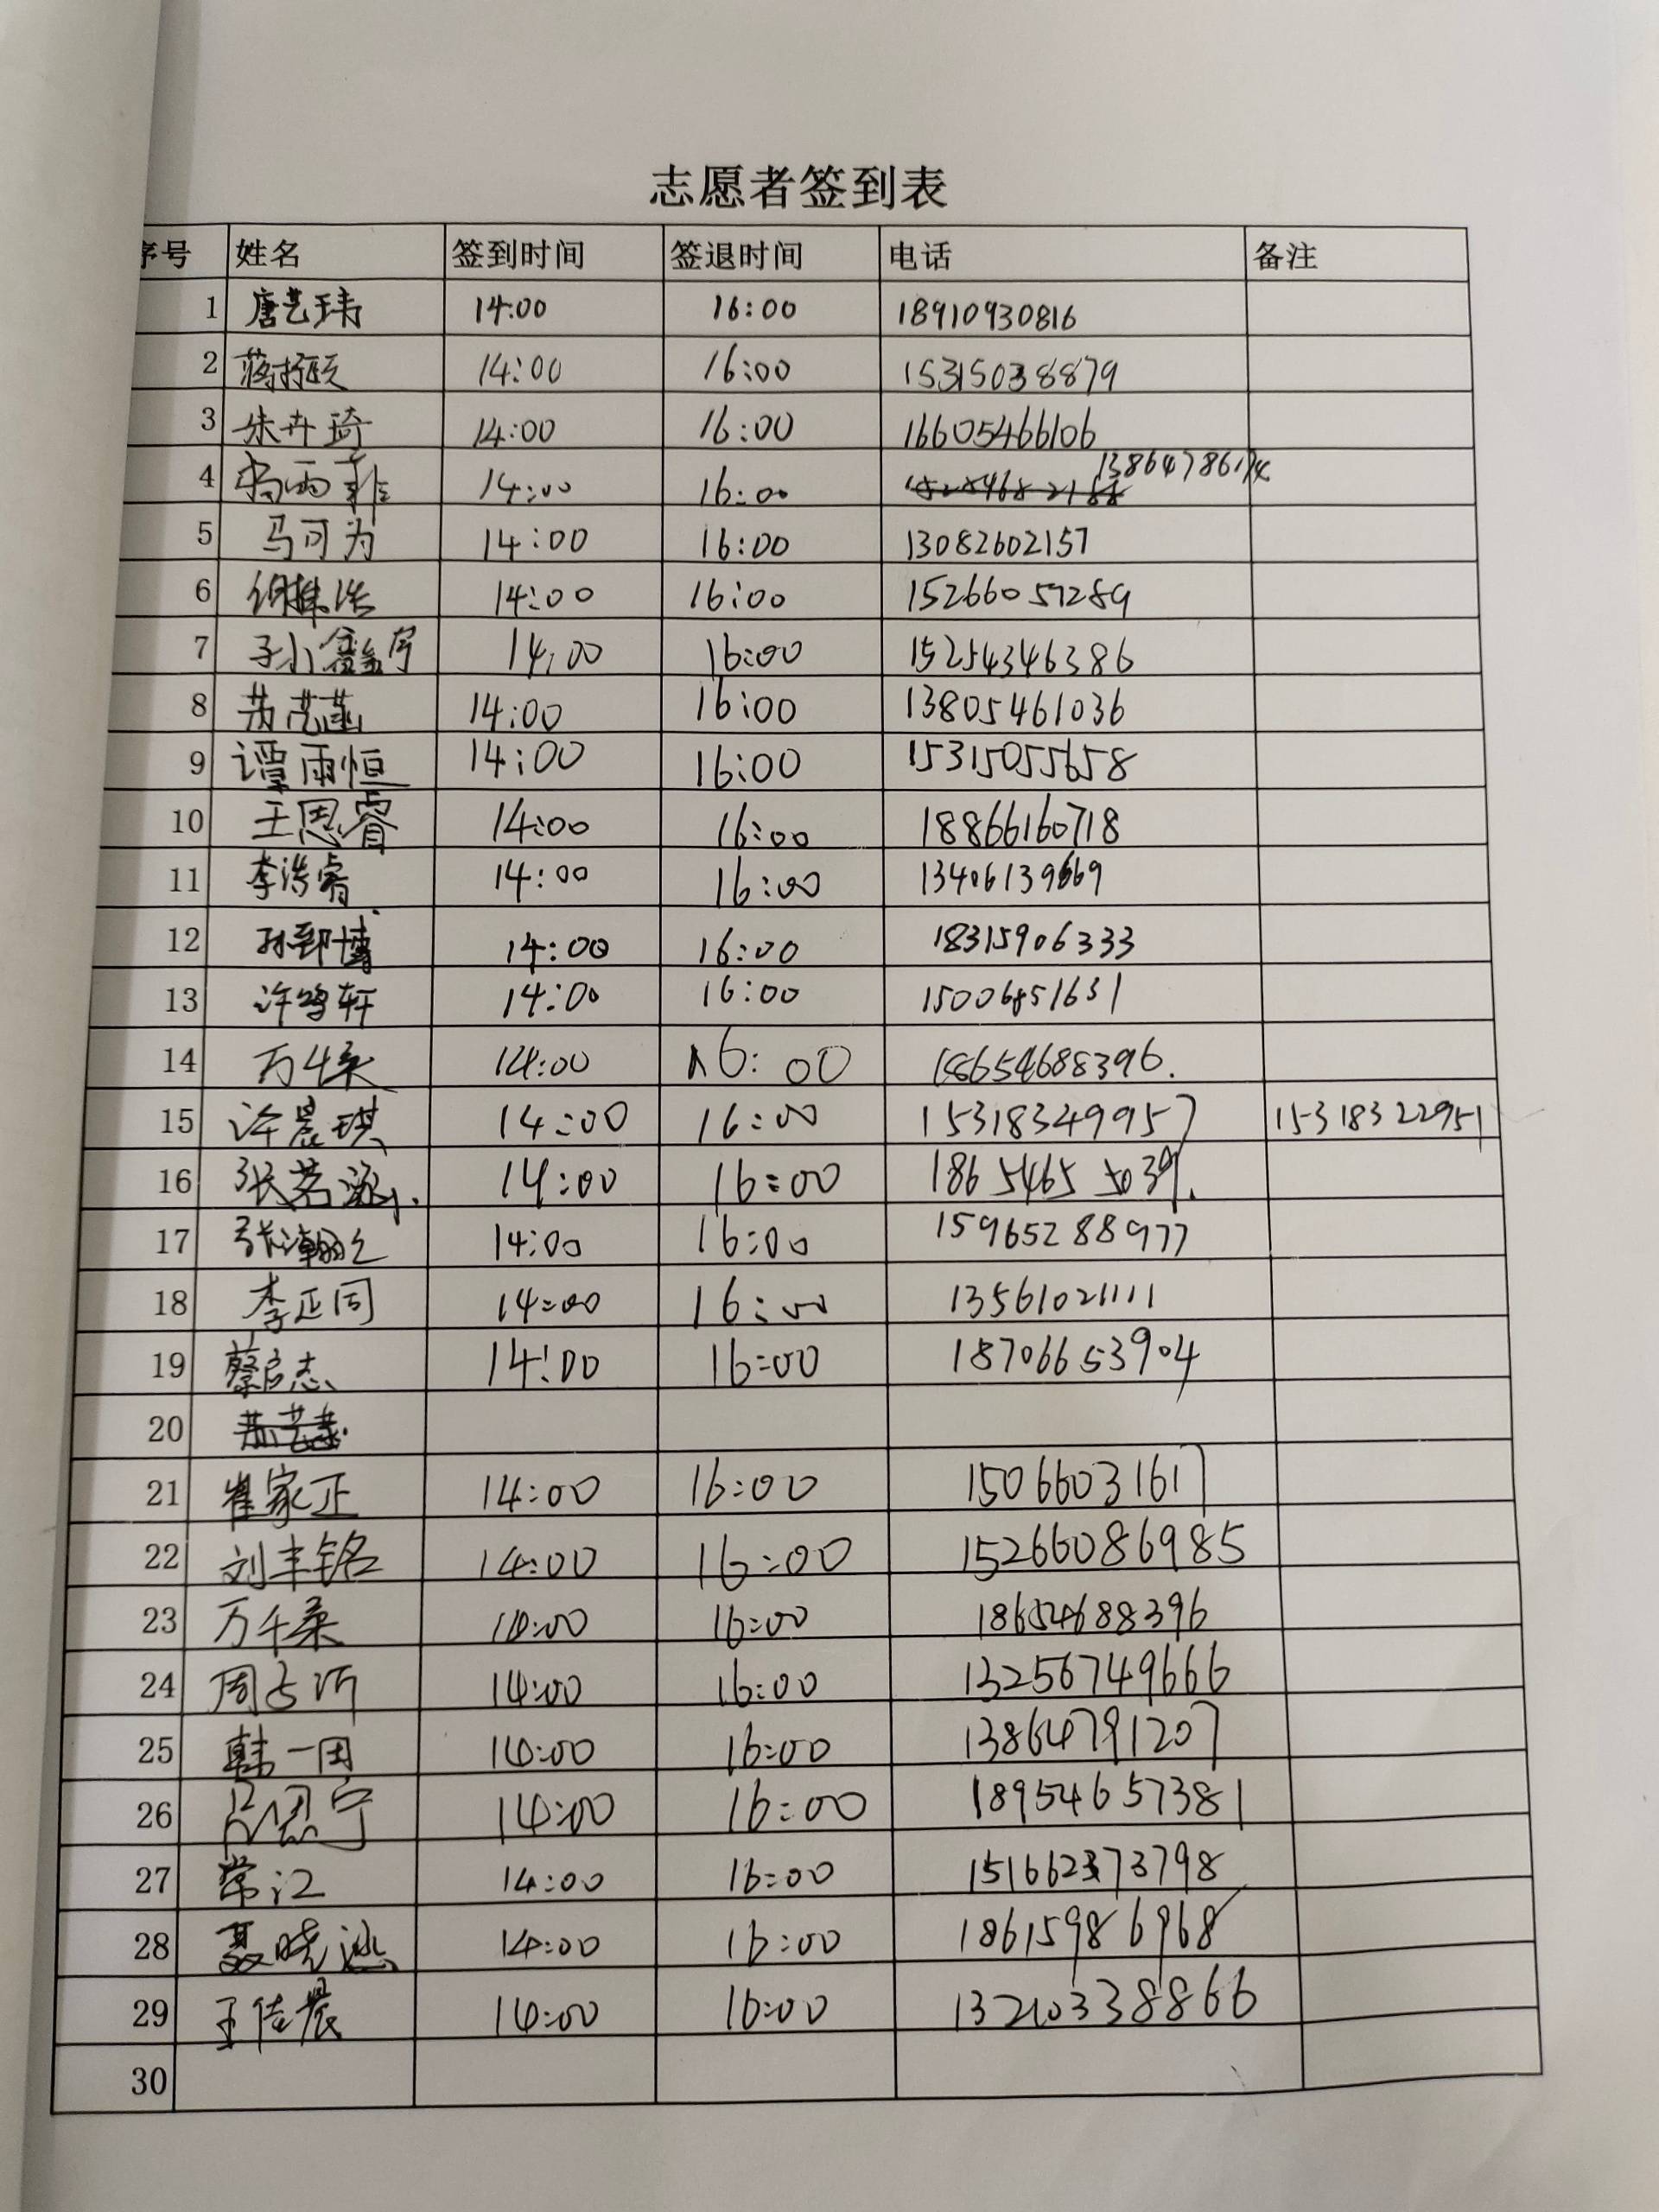 志愿者签到表
序号 姓名 签到时间 签退时间 电话 备注
1 唐艺玮 14:00 16:00 18910930816
2 蒋 14:00 16:00 15315038879
3 朱卉琦 14:00 16:00 16605466106
4 雨菲 14:00 16:00 13864786174
5 马可为 14:00 16:00 13082602157
6 14:00 16:00 15266057289
7 孙鑫宇 14:00 16:00 15254346386
8 苏艺菡 14:00 16:00 13805461036
9 谭雨恒 14:00 16:00 15315055658
10 王思睿 14:00 16:00 18866160718
11 李浩睿 14:00 16:00 13406139669
12 孙郅博 14:00 16:00 18315906333
13 许鸣轩 14:00 16:00 15006851631
14 万千柔 14:00 16:00 18654688396.
15 许晨琪 14:00 16:00 15318349957 15318322951
16 张茗涵 14:00 16:00 18654655039.
17 张瀚之 14:00 16:00 15965288977
18 李正同 14:00 16:00 13561021111
19 蔡启志 14:00 16:00 18706653904
20
21 崔家正 14:00 16:00 15066031617
22 刘丰铭 14:00 16:00 15266086985
23 万千柔 14:00 16:00 18654688396
24 周占沂 14:00 16:00 13256749666
25 韩一田 14:00 16:00 13864791207
26 吕思宁 14:00 16:00 18954657381
27 常江 14:00 16:00 15166273798
28 聂晓逊 14:00 16:00 18615986968
29 王佳晨 14:00 16:00 13210338866
30